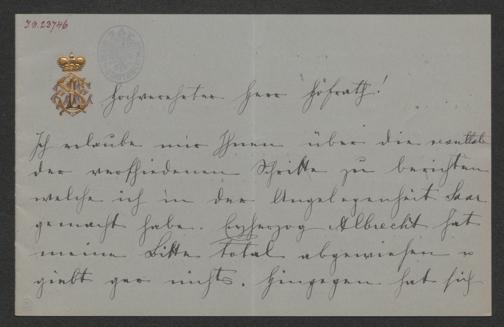 I.N. 23746
Hochverehrter Herr Hofrath!
Ich erlaube mir Ihnen über die
der verschiedenen Schritte zu berichten
welche ich in der Angelegenheit Saar
gemacht habe. Erzherzog Albrecht hat
meine Bitte total abgewiesen u
giebt gar nichts. Hingegen hat sich